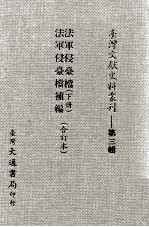 臺灣文獻史料叢刊——第三輯
法軍侵臺檔(下冊)
法軍侵臺檔補編
(合訂本)
臺灣大通書局印行